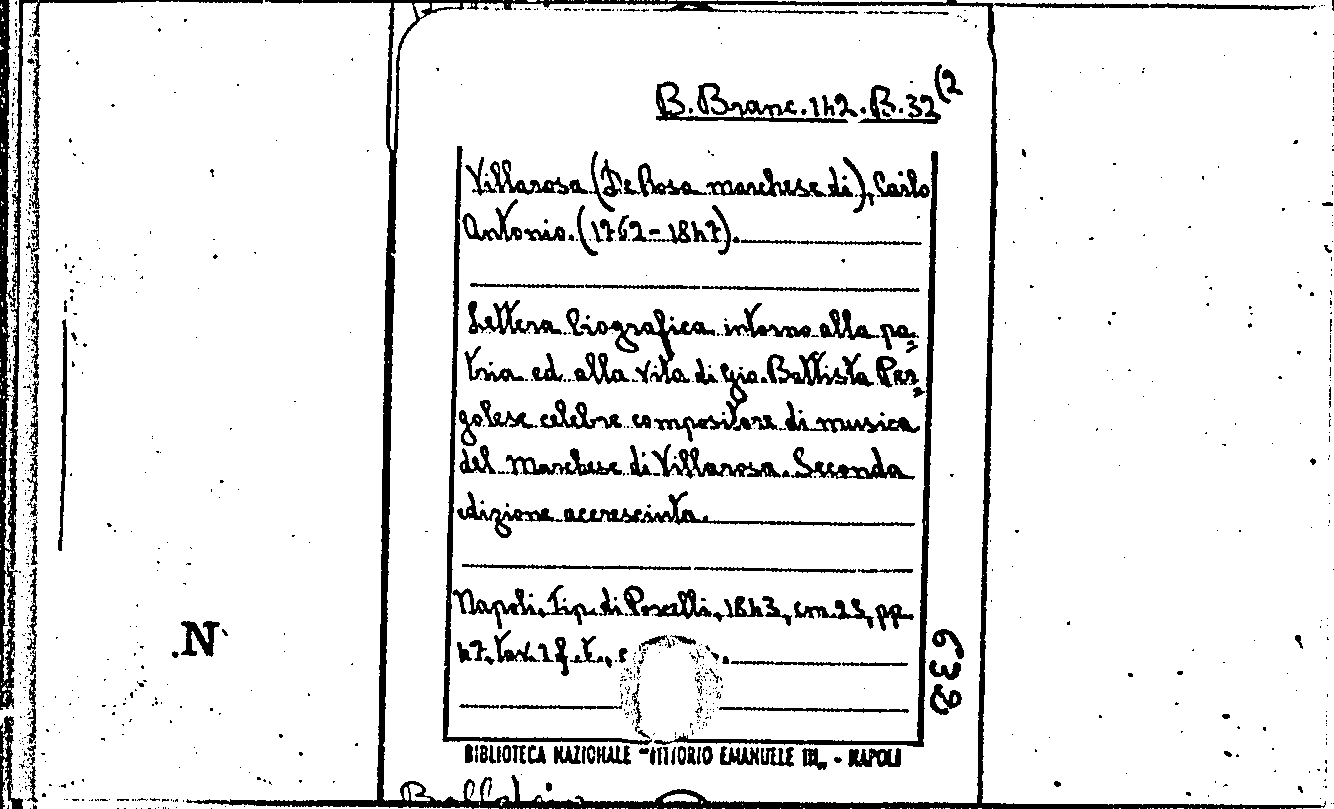 B. Branc. 142. B. 32(2
Villarosa (De Rosa marchese di), Carlo
Antonio. (1762-1847).
Lettera biografica intorno alla pa=
tria ed alla vita di Gio. Battista Per=
golese celebre compositore di musica
del Marchese di Villarosa. Seconda
edizione accresciuta.
Napoli, Tip. di Porcelli, 1843, cm. 23, pp.
47, tav. 1 f. t.,
633
.N
BIBLIOTECA NAZIONALE "VITTORIO EMANUELE III„ - NAPOLI